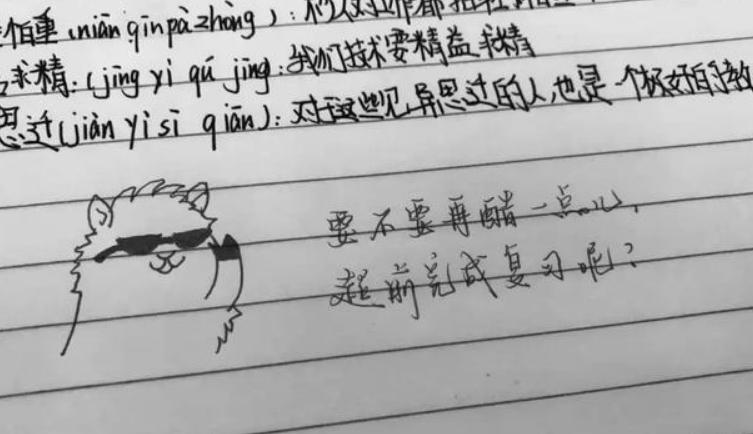 怕重(niān qīn pà zhòng):
求精:(jīng yì qú jīng:我们技术要精益求精
思迁(jiàn yì sī qiān):对这些见异思迁的人,也是一个极好的教
要不要再醋一点儿,
超前完成复习呢?